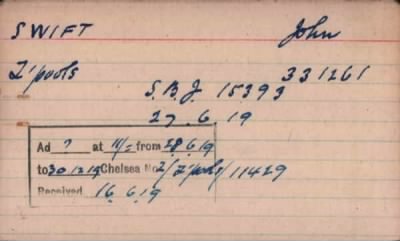 SWIFT John
L'pools 331261
S.B.J. 15393
27.6.19
Ad ? at 11/= from 28.6.19
to 30.12.19 Chelsea No 2/L'pools/11429
Received 16.6.19